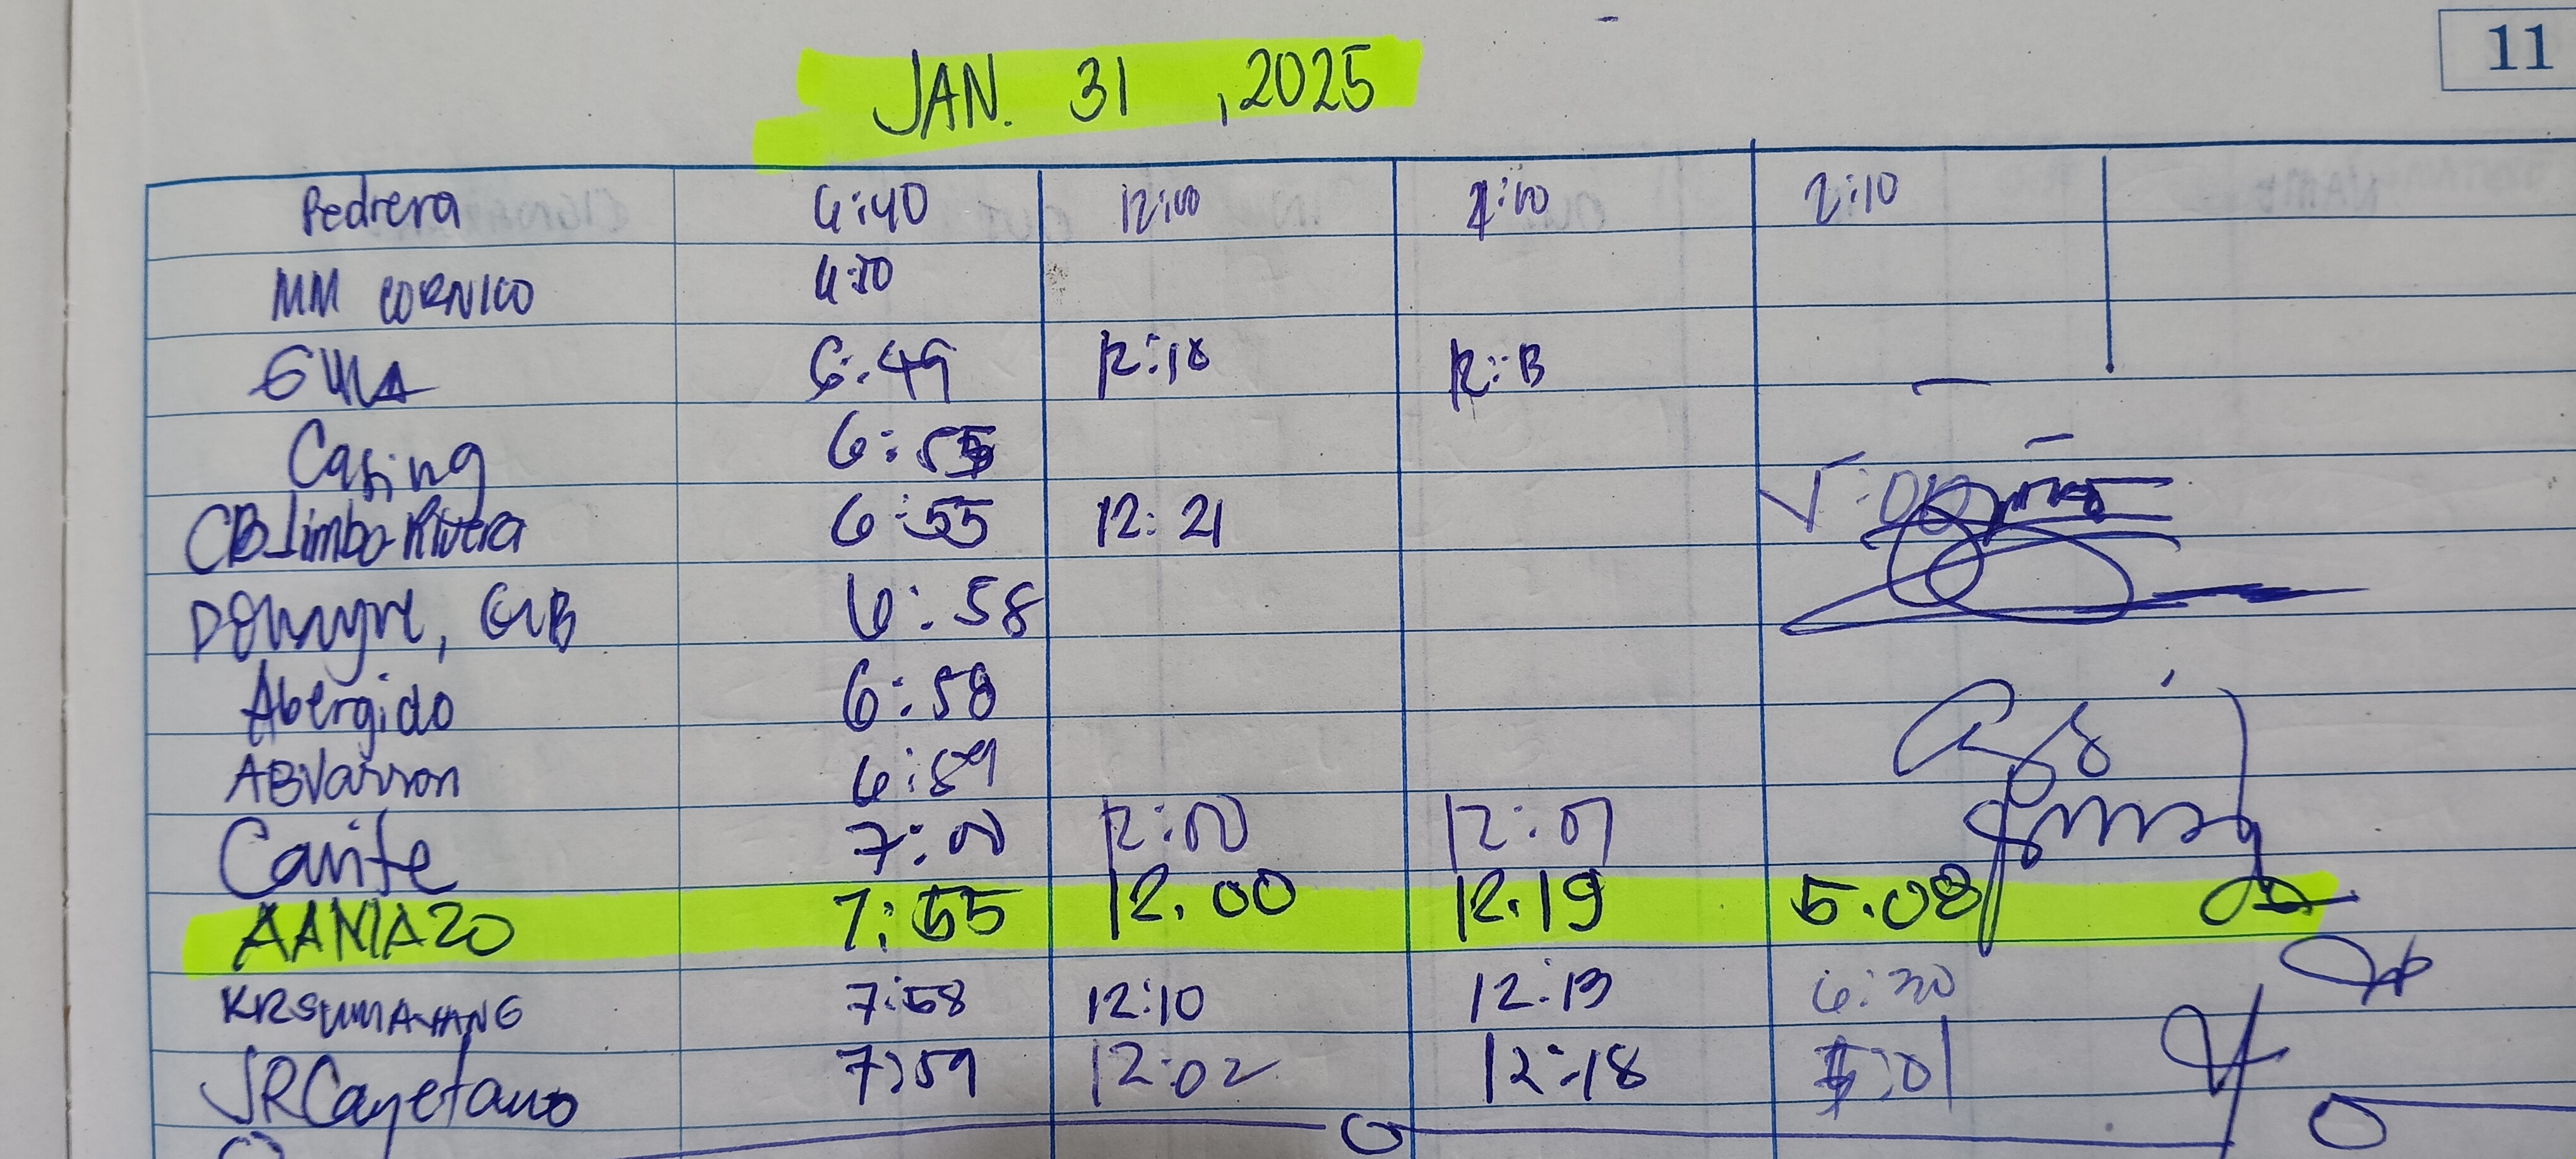 11
JAN. 31, 2025
Pedrera 6:40 12:00 2:10
MM CORNICO
6:49 12:18 12:13
Casing 6:55
CB Jimbo-Rivera 6:55 12:21 5:00
6:58
Abergido 6:58
ABVarron 6:59
Cavite 7:00 12:00 12:01
AANIAZO 7:55 12.00 12.19 5.08
KRSUMAYANG 7:58 12:10 12:13 6:30
JRCayetano 7:59 12:02 12:18 5:01